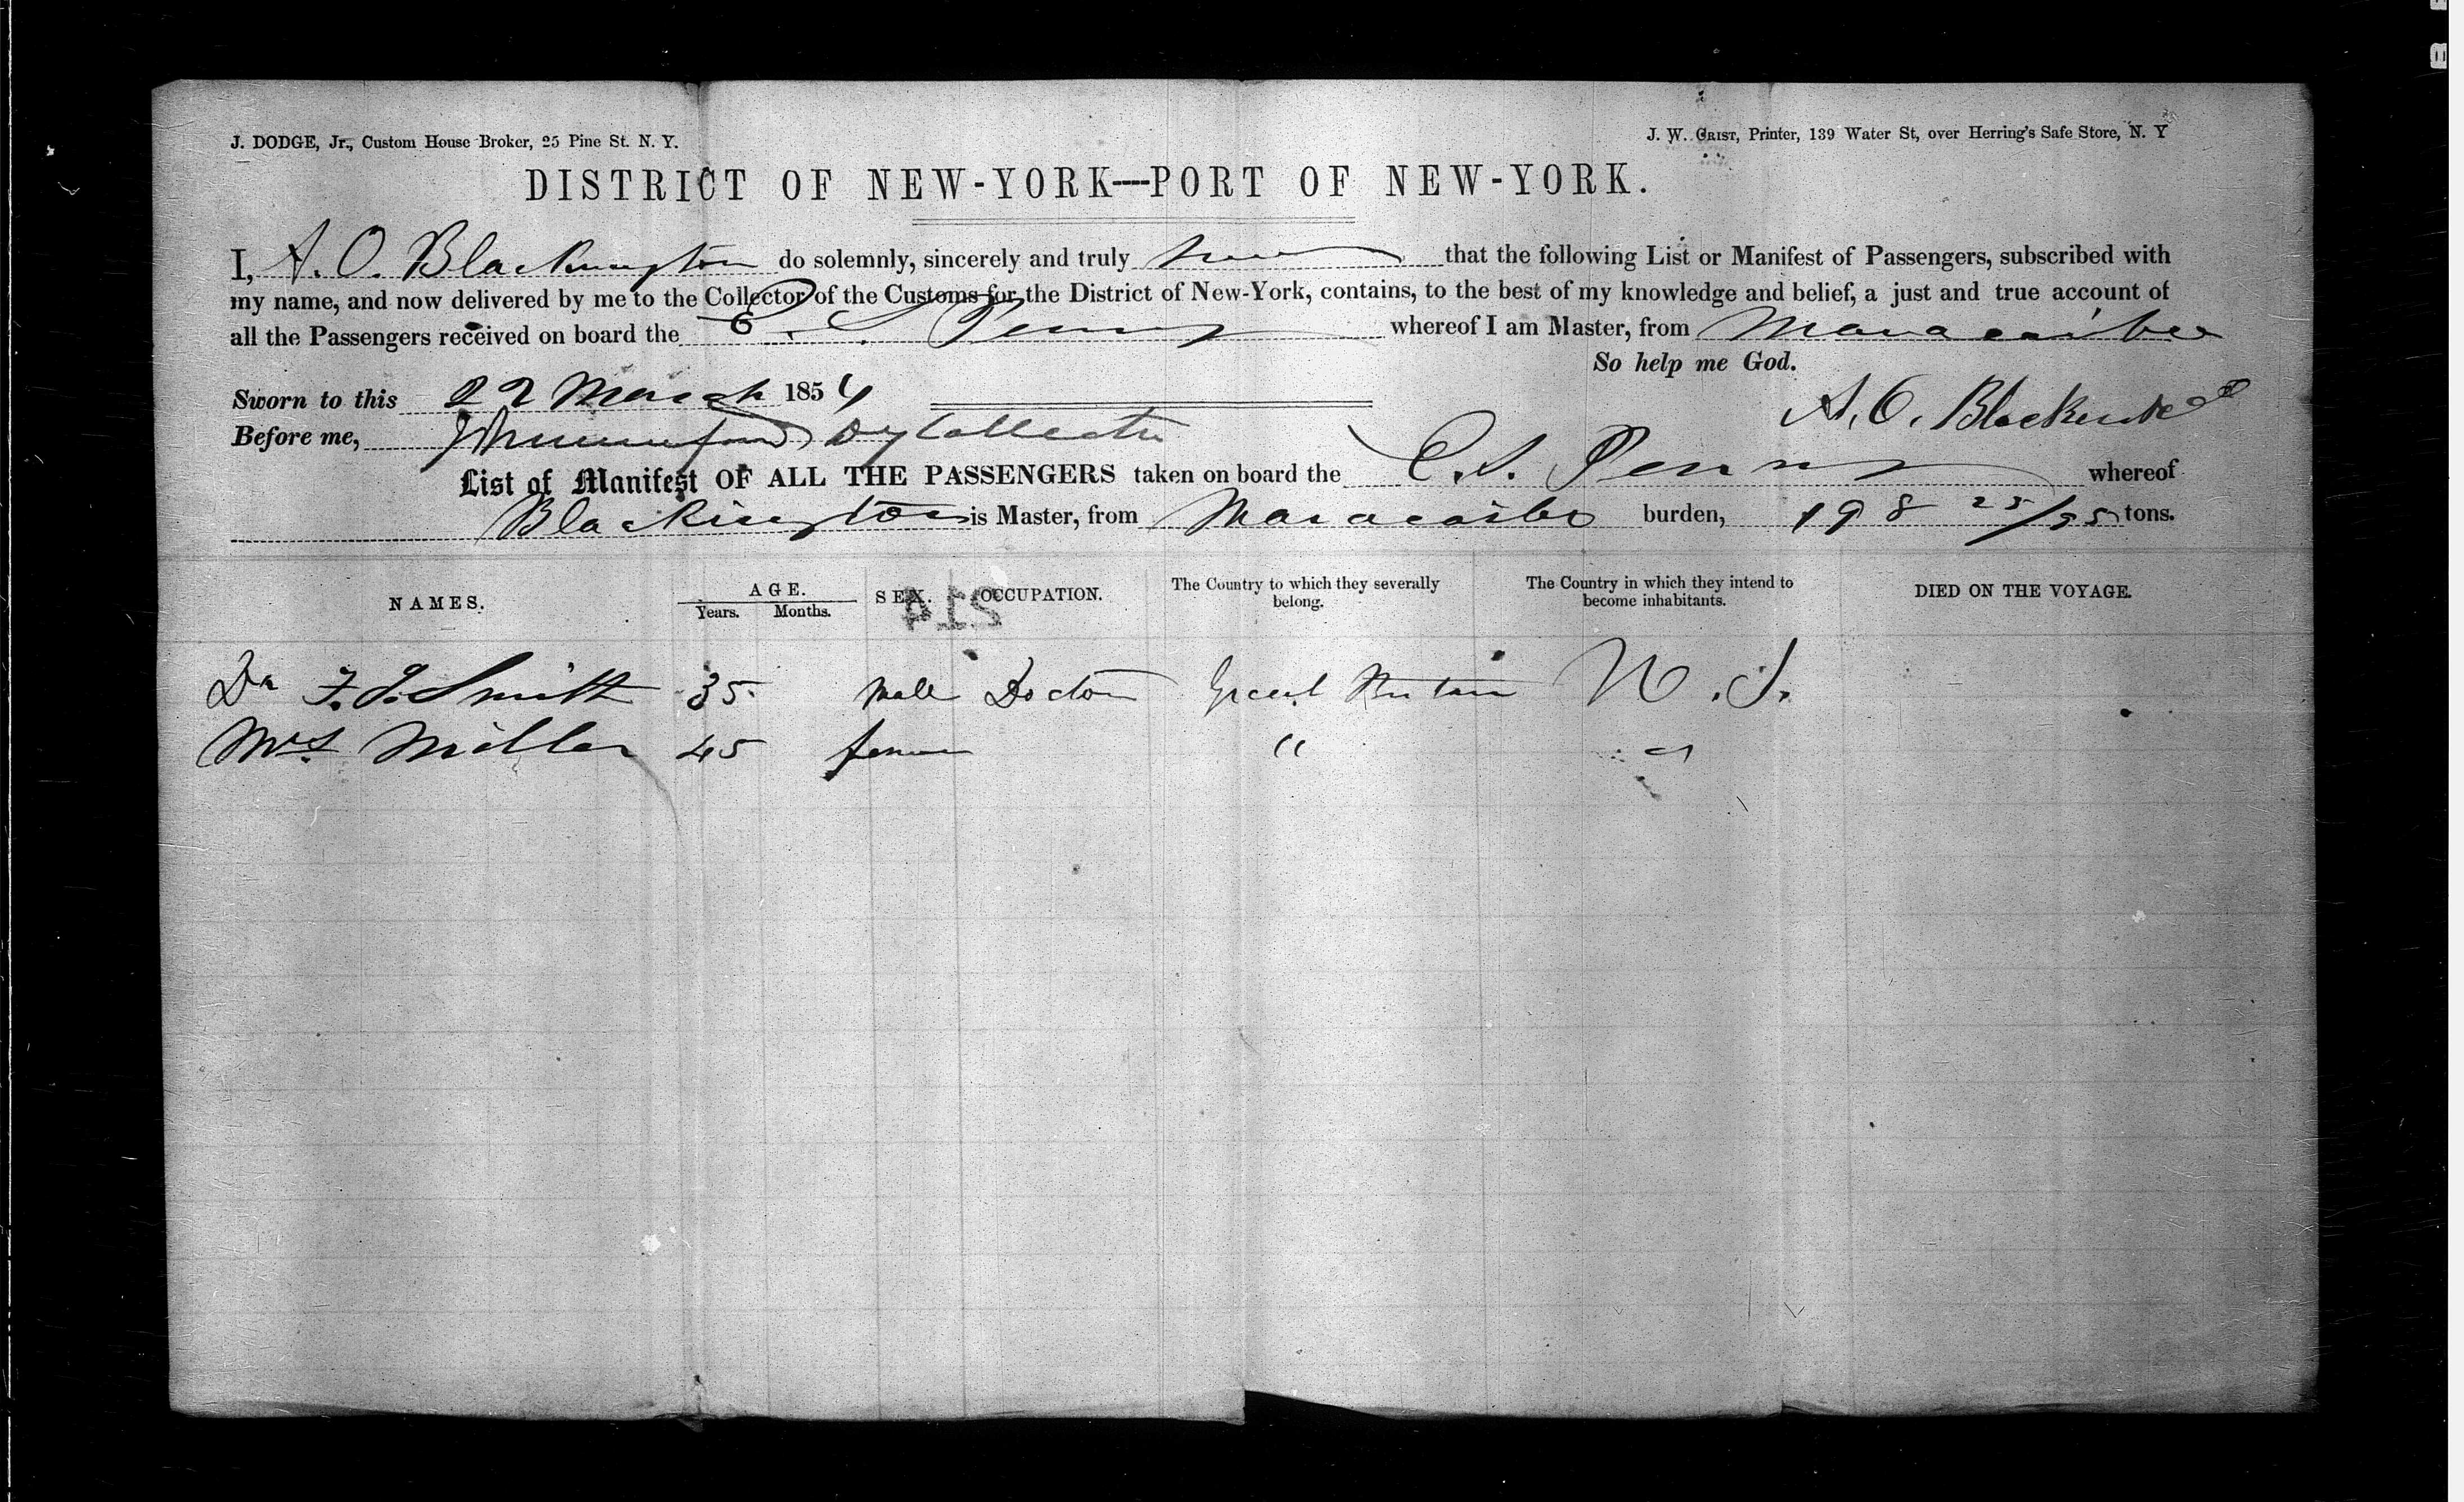 J. DODGE, Jr., Custom House Broker, 25 Pine St. N. Y.
J. W. GRIST, Printer, 139 Water St, over Herring's Safe Store, N. Y
DISTRICT OF NEW-YORK—PORT OF NEW-YORK.
I, A. O. Blackington do solemnly, sincerely and truly swear that the following List or Manifest of Passengers, subscribed with
my name, and now delivered by me to the Collector of the Customs for the District of New-York, contains, to the best of my knowledge and belief, a just and true account of
all the Passengers received on board the C. S. Penny whereof I am Master, from Maracaibo
So help me God.
Sworn to this 22 March 1854
A. O. Blackington
Before me, Dy Collector
List of Manifest OF ALL THE PASSENGERS taken on board the C. S. Penny whereof
Blackington is Master, from Maracaibo burden, 198 25/95 tons.
NAMES. AGE. Years. Months. SEX. OCCUPATION. The Country to which they severally belong. The Country in which they intend to become inhabitants. DIED ON THE VOYAGE.
214
Dr F. J. Smith 35 Male Doctor Great Britain U. S.
Mrs Miller 45 female " "